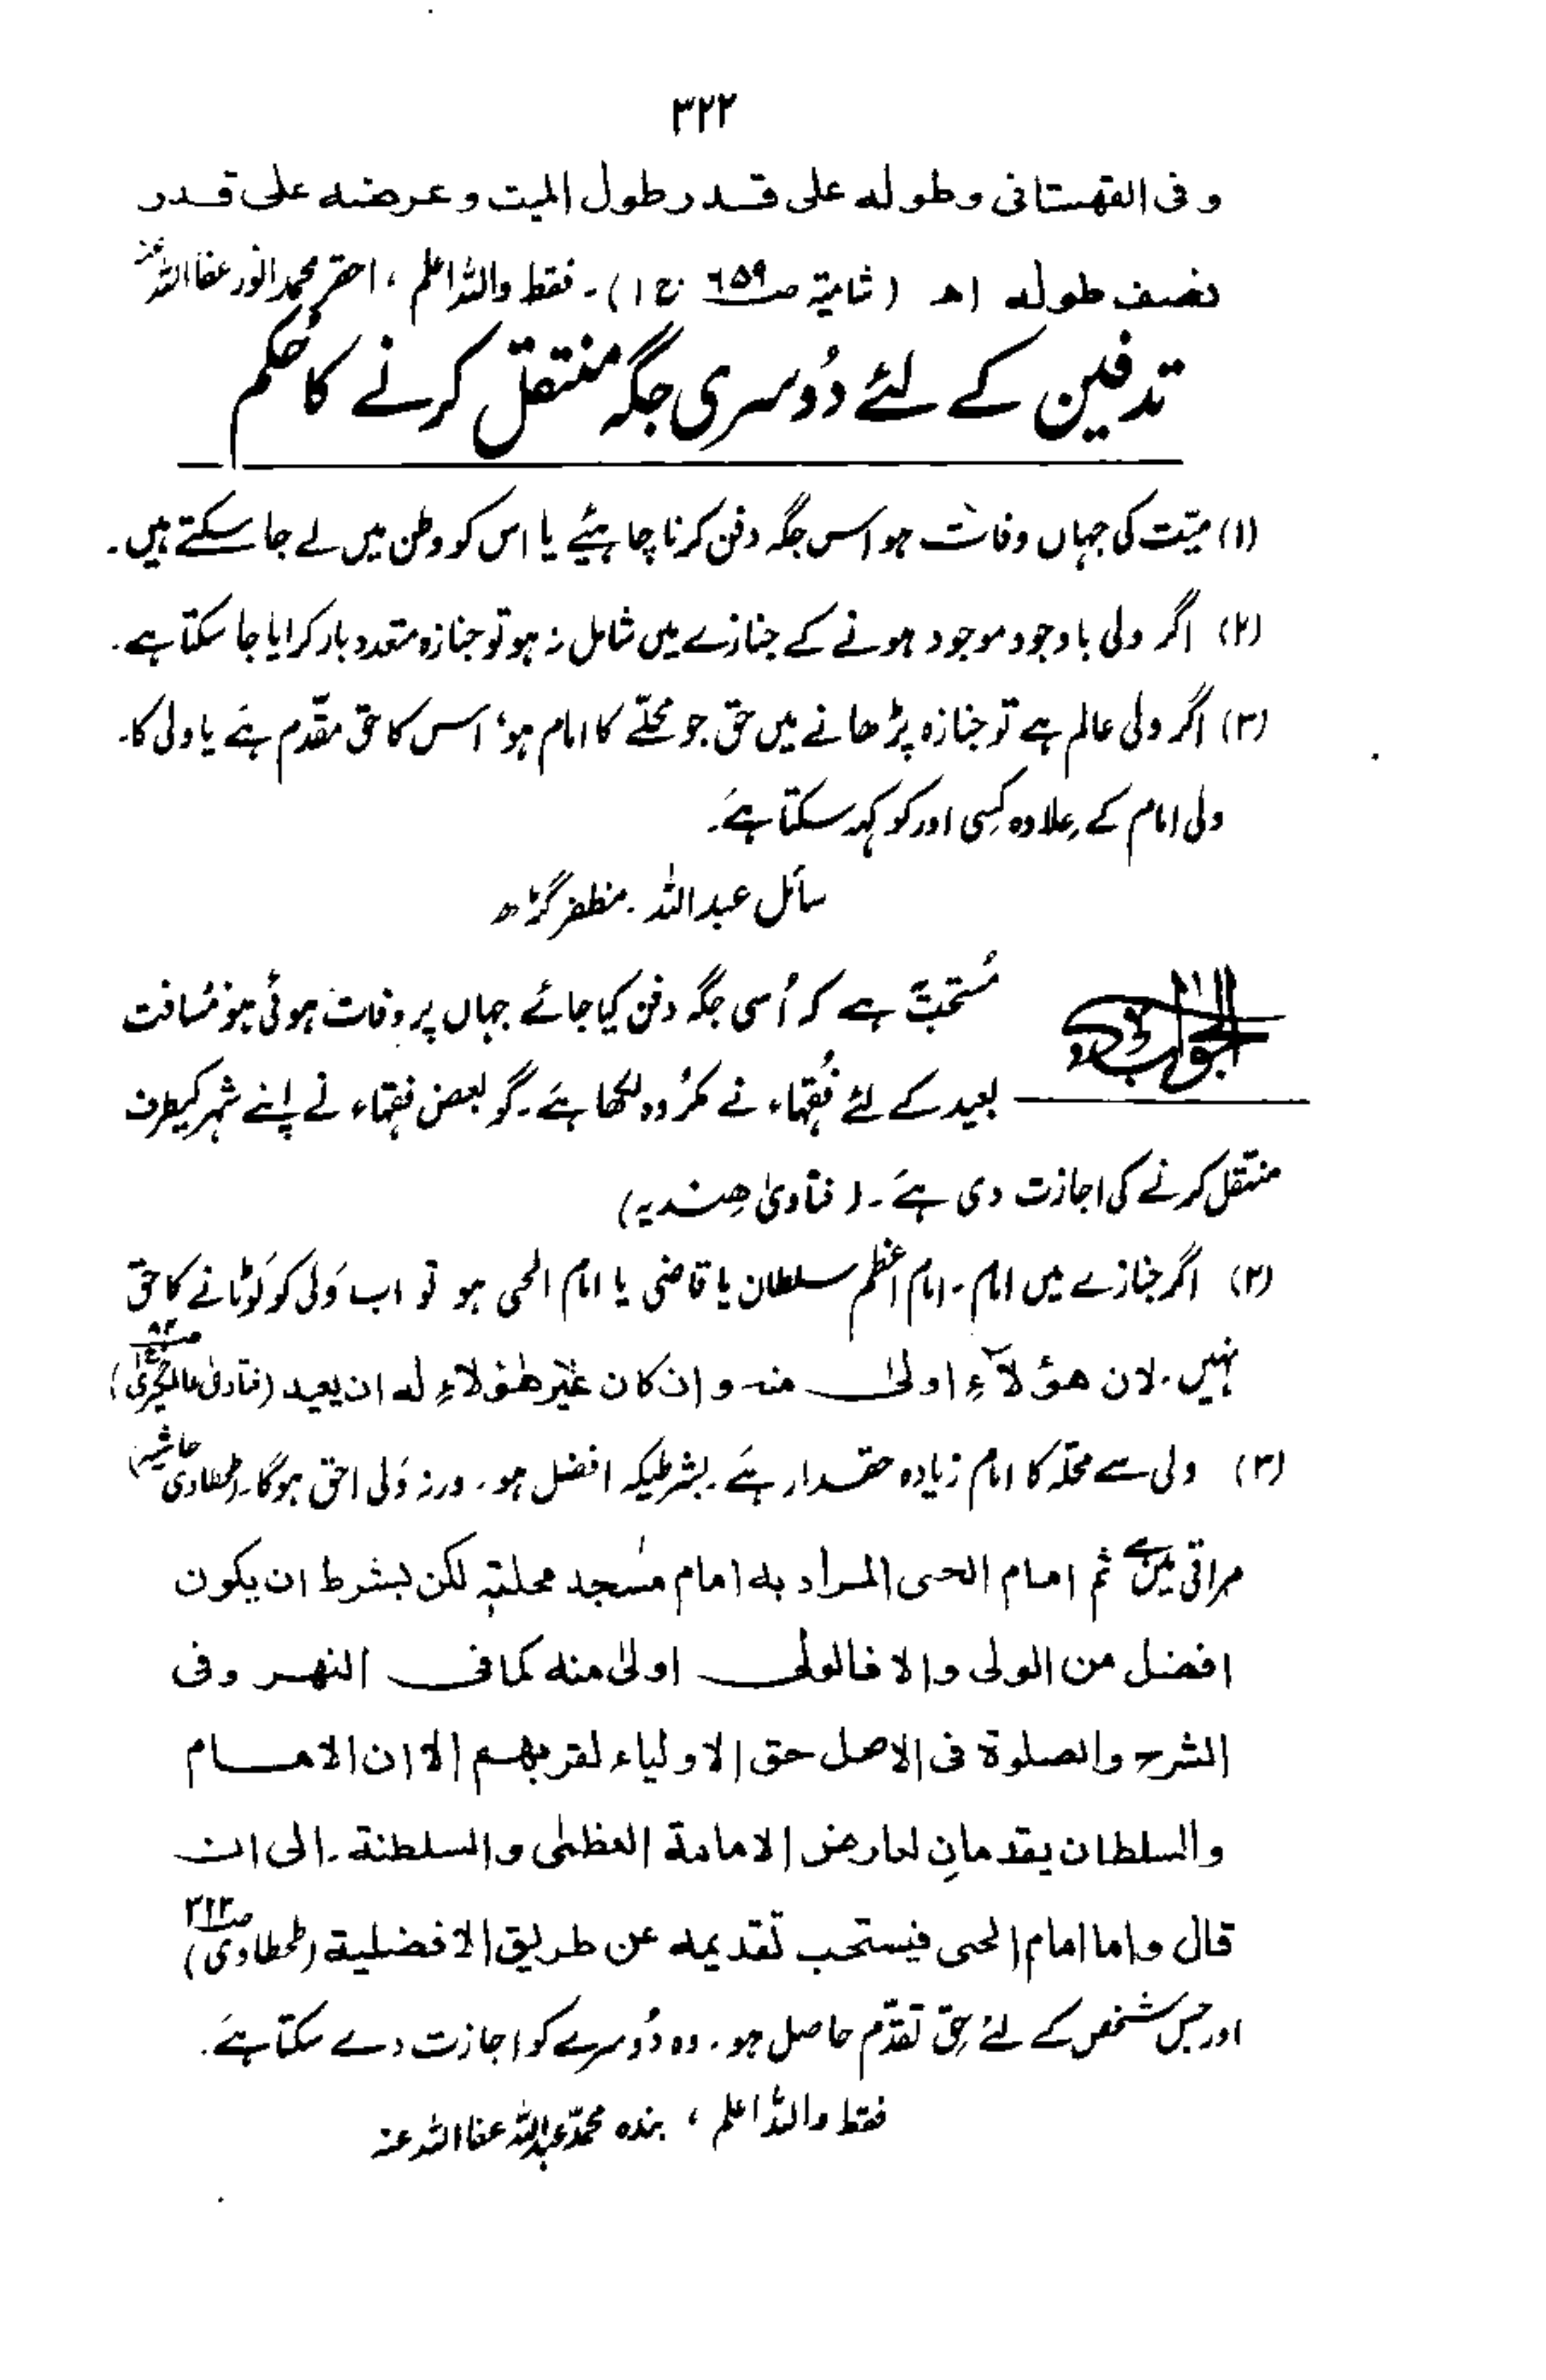 ۳۲۲
وفی القهستانی وطوله علی قدر طول المیت وعرضه علی قدر
نصف طوله اھ (شامیۃ صـ ٦۵۹ ج ۱)۔ فقط واللہ اعلم، احقر محمد انور عفا اللہ عنہ
تدفین کے لئے دُوسری جگہ منتقل کرنے کا حُکم
(۱) میّت کی جہاں وفات ہو اس جگہ دفن کرنا چاہئیے یا اس کو وطن میں لے جا سکتے ہیں۔
(۲) اگر ولی باوجود موجود ہونے کے جنازے میں شامل نہ ہو تو جنازہ متعدد بار کرایا جا سکتا ہے۔
(۳) اگر ولی عالم ہے تو جنازہ پڑھانے میں حق جو محلّے کا امام ہو، اس کا حق مقدّم ہے یا ولی کا۔
ولی امام کے علاوہ کِسی اور کو کہہ سکتا ہے۔
سائل عبد اللہ۔ مظفر گڑھ
الجواب مُستحبّ ہے کہ اُسی جگہ دفن کیا جائے جہاں پر وفات ہوئی ہو مُسافت
بعید کے لئے فُقہاء نے مکرُوہ لکھا ہے۔ گو بعض فقہاء نے اپنے شہر کیطرف
منتقل کرنے کی اجازت دی ہے۔ (فتاویٰ ھِندیہ)
(۲) اگر جنازے میں امام۔ امام اعظم سلطان یا قاضی یا امام الحی ہو تو اب وَلی کو لَوٹانے کا حق
نہیں۔ لان ھؤلآءِ اولیٰ منہ وان کان غیر ھٰؤلاءِ لہ ان یعید (فتاویٰ عالمگیری)
(۳) ولی سے محلّہ کا امام زیادہ حقدار ہے۔ بشرطیکہ افضل ہو۔ ورنہ وَلی احق ہوگا۔ طحطاوی حاشیہ
مراقی میں ہے ثم امام الحی المراد به امام مسجد محلتہٖ لکن بشرط ان یکون
افضل من الولی والا فالولی اولیٰ منه کما فی النهر وفی
الشرح والصلوة فی الاصل حق الاولیاء لقربهم الا ان الامام
والسلطان یقدمانِ لعارض الامامة العظمٰی والسلطنة۔ الی ان
قال واما امام الحی فیستحب تقدیمه عن طریق الافضلیة (طحطاوی)
اور جس شخص کے لئے حق تقدّم حاصل ہو۔ وہ دُوسرے کو اجازت دے سکتا ہے۔
فقط واللہ اعلم، بندہ محمّد عبد اللہ عفا اللہ عنہ